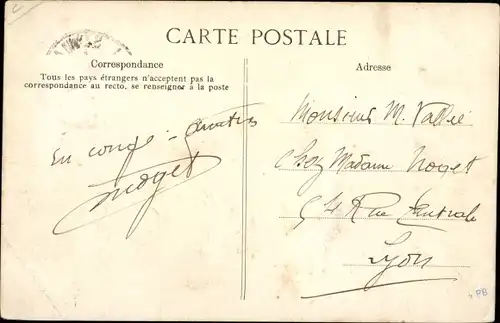 CARTE POSTALE
Correspondance
Tous les pays étrangers n'acceptent pas la
correspondance au recto, se renseigner à la poste
Adresse
En congé -
Noyet
Monsieur M. Vallié
Chez Madame Noyet
54 Rue Centrale
Lyon
PB